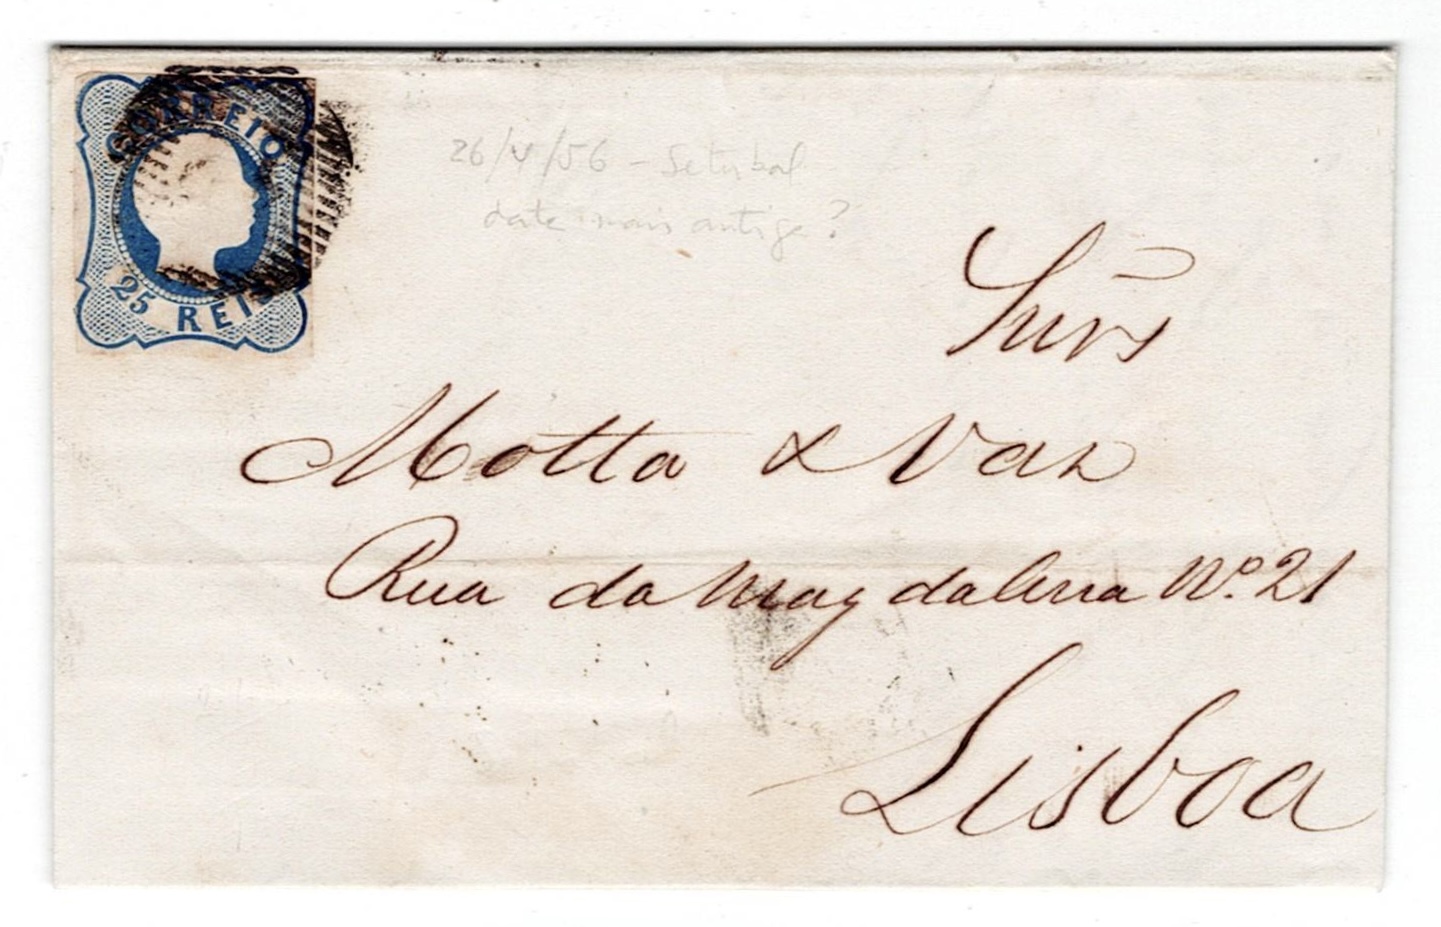 CORREIO
25 REIS
26/4/56 - Setubal
date mais antiga?
Snrs
Motta & Vaz
Rua da Magdalena Nº. 21
Lisboa